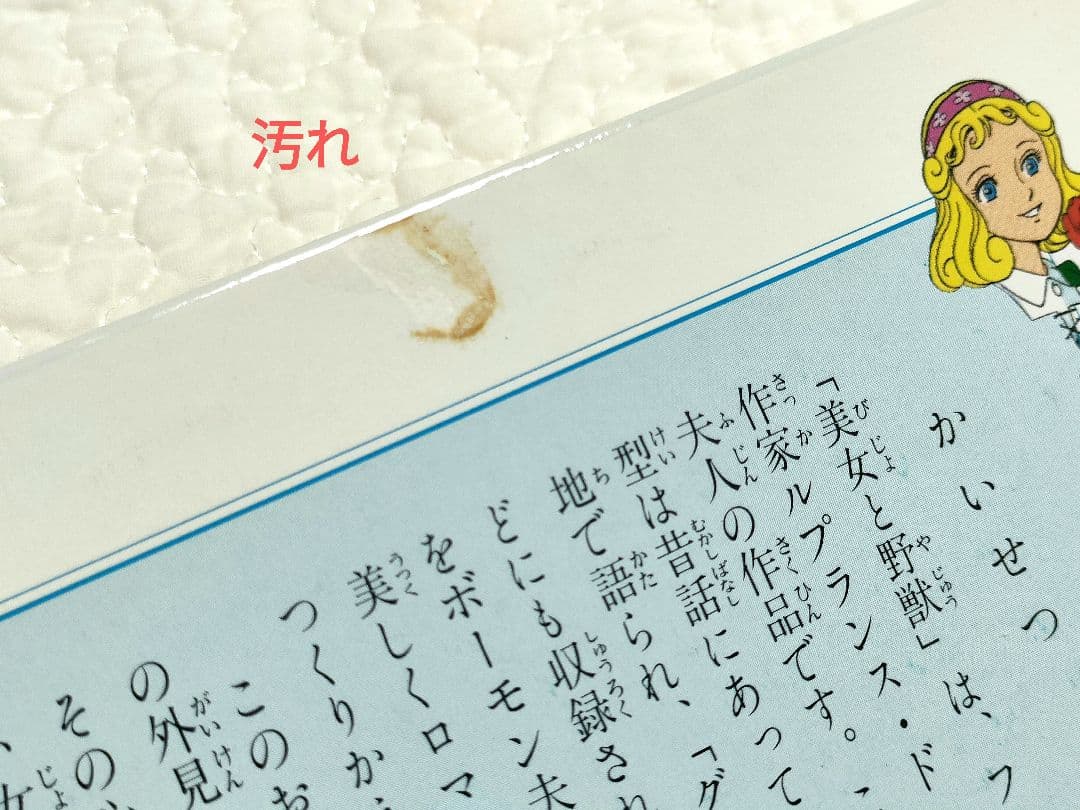 汚れ
かいせつ
「美女と野獣」は、フ
作家ルプランス・ド
夫人の作品です。こ
型は昔話にあって
地で語られ、「グ
どにも収録され
をボーモン夫
美しくロマ
つくりか
このお
の外見
その